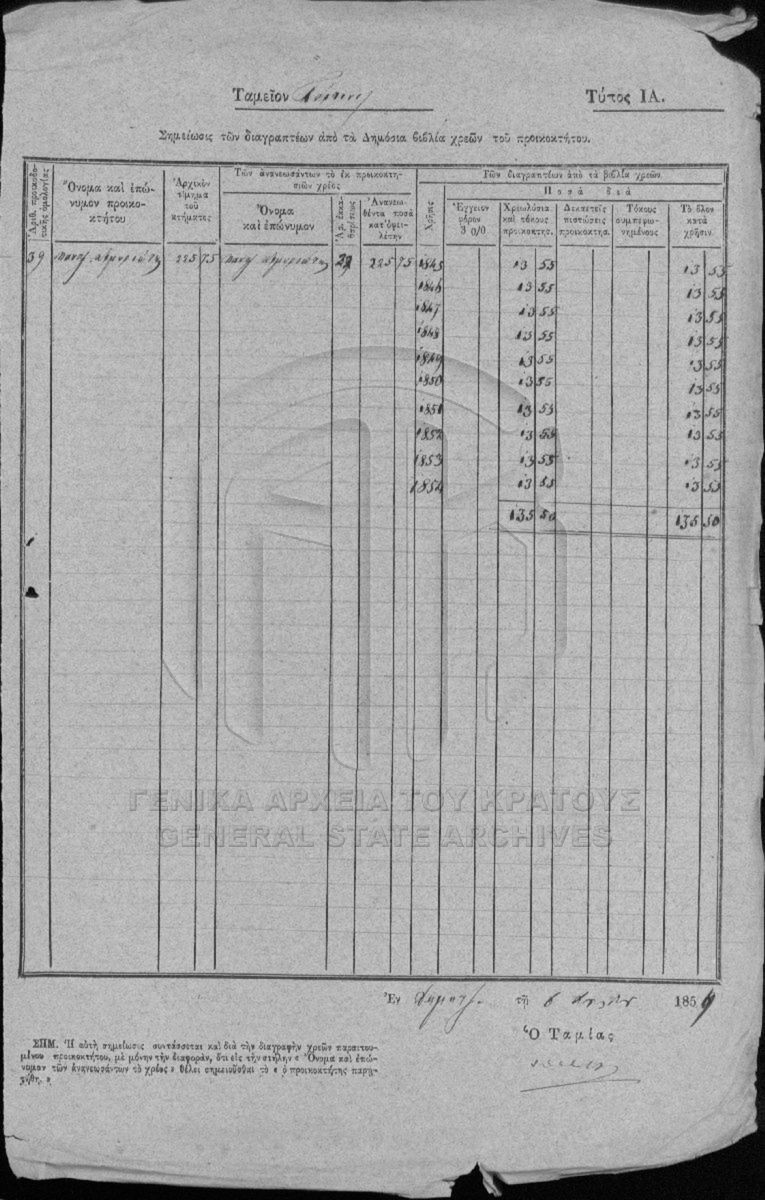 Ταμεῖον
Τύπος ΙΑ.
Σημείωσις τῶν διαγραπτέων ἀπὸ τὰ Δημόσια βιβλία χρεῶν τοῦ προικοκτήτου.
Ἀριθ. προικοδοτικῆς ὁμολογίας
Ὄνομα καὶ ἐπώνυμον προικοκτήτου
Ἀρχικὸν τίμημα τοῦ κτήματος
Τῶν ἀνανεωσάντων τὸ ἐκ προικοκτησιῶν χρέος
Ὄνομα καὶ ἐπώνυμον
Ἀρ. ἐκκαθαρίσεως
Ἀνανεωθέντα ποσὰ κατ' ὀφειλέτην
Τῶν διαγραπτέων ἀπὸ τὰ βιβλία χρεῶν
Χρῆσις
Ποσὰ διὰ
Ἔγγειον φόρον 3 0/0
Χρεωλύσια καὶ τόκους προικοκτησ.
Δεκαετεῖς πιστώσεις προικοκτησ.
Τόκους συμπεφωνημένους
Τὸ ὅλον κατὰ χρῆσιν
39 225 75 225 75 1845 13 55 13 55
1846 13 55 13 55
1847 13 55 13 55
1848 13 55 13 55
1849 13 55 13 55
1850 13 55 13 55
1851 13 55 13 55
1852 13 55 13 55
1853 13 55 13 55
1854 13 55 13 55
135 50 135 50
ΓΕΝΙΚΑ ΑΡΧΕΙΑ ΤΟΥ ΚΡΑΤΟΥΣ
GENERAL STATE ARCHIVES
Ἐν τῇ 6 185
Ὁ Ταμίας
ΣΗΜ. Ἡ αὐτὴ σημείωσις συντάσσεται καὶ διὰ τὴν διαγραφὴν χρεῶν παραιτου-
μένου προικοκτήτου, μὲ μόνην τὴν διαφορὰν, ὅτι εἰς τὴν στήλην « Ὄνομα καὶ ἐπώ-
νυμον τῶν ἀνανεωσάντων τὸ χρέος » θέλει σημειοῦσθαι τὸ « ὁ προικοκτήτης παρῃ-
τήθη. »